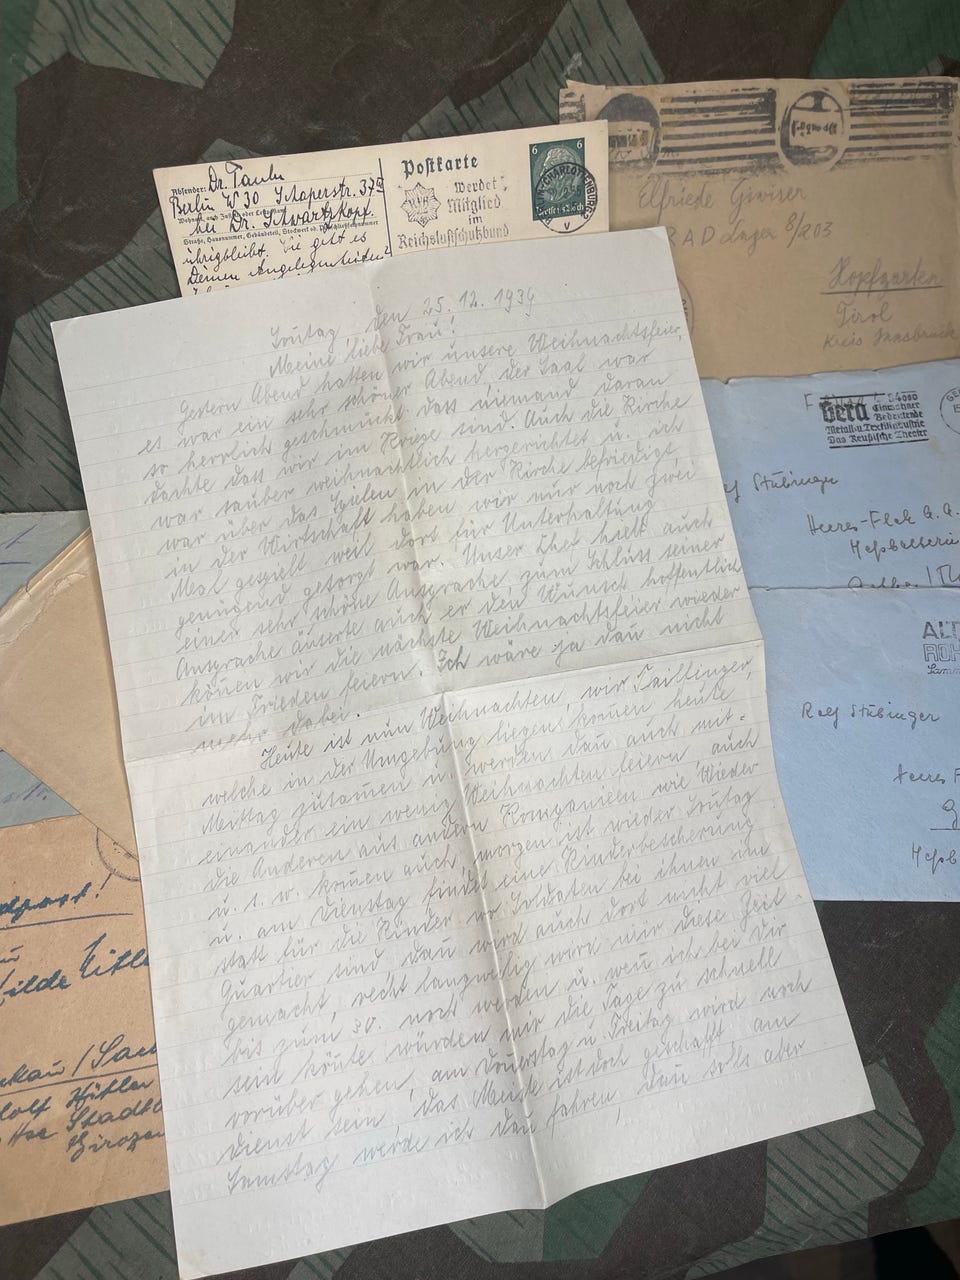 Absender: Dr. Taube
Berlin W 30 Schaperstr. 37
Wohnort, auch Zustell- oder Leitpostamt
bei Dr. Schwartzkopf.
Straße, Hausnummer, Gebäudeteil, Stockwerk od. Postschließfachnummer
übrigbleibt. Sie geht es
Deinen Angelegenheiten
Postkarte
Werdet
Mitglied
im
Reichsluftschutzbund
6 6
CHARLOTTENBURG
V
Elfriede
R A D Lager 8/203
Hopfgarten
Tirol
Kreis Innsbruck
Gera
54000
Einwohner
Bedeutende
Metall u. Textilindustrie
Das Reußische Theater
Stübinger
Heeres-Flak A. A.
ALT
ROH
Samm
Rolf Stübinger
Heeres F
den 25. 12. 1939
Meine liebe Frau!
Gestern Abend hatten wir unsere Weihnachtsfeier,
es war ein sehr schöner Abend, der Saal war
so herrlich geschmückt, dass niemand daran
dachte dass wir im Kriege sind. Auch die Kirche
war sauber weihnachtlich hergerichtet u. ich
war über das Spielen in der Kirche befriedigt,
in der Wirtschaft haben wir nur noch zwei
Mal gespielt weil dort für Unterhaltung
genügend gesorgt war. Unser Chef hielt auch
einer sehr schöne Ansprache, zum Schluss seiner
Ansprache äuserte auch er den Wunsch hoffentlich
können wir die nächste Weihnachtsfeier wieder
im Frieden feiern. Ich wäre ja dan nicht
mehr dabei.
Heute ist nun Weihnachten, wir
welche in der Umgebung liegen, komen heute
Mittag zusamen u. werden dan auch mit-
einander ein wenig Weihnachten feiern auch
die Anderen aus andern Kompanieen wie Wieder
u. s. w. komen auch, morgen ist wieder
u. am Dienstag findet eine Kinderbescherung
statt für die Kinder wo Soldaten bei ihnen im
Quartier sind, dan wird auch dort nicht viel
gemacht, recht langweilig wird mir diese Zeit
bis zum 30. noch werden u. wen ich bei Dir
sein könte würden mir die Tage zu schnell
vorüber gehen, am Donerstag u. Freitag wird noch
Dienst sein, das Meiste ist doch geschafft am
Samstag werde ich dan fahren, dan solls aber
dpost!
Stadt